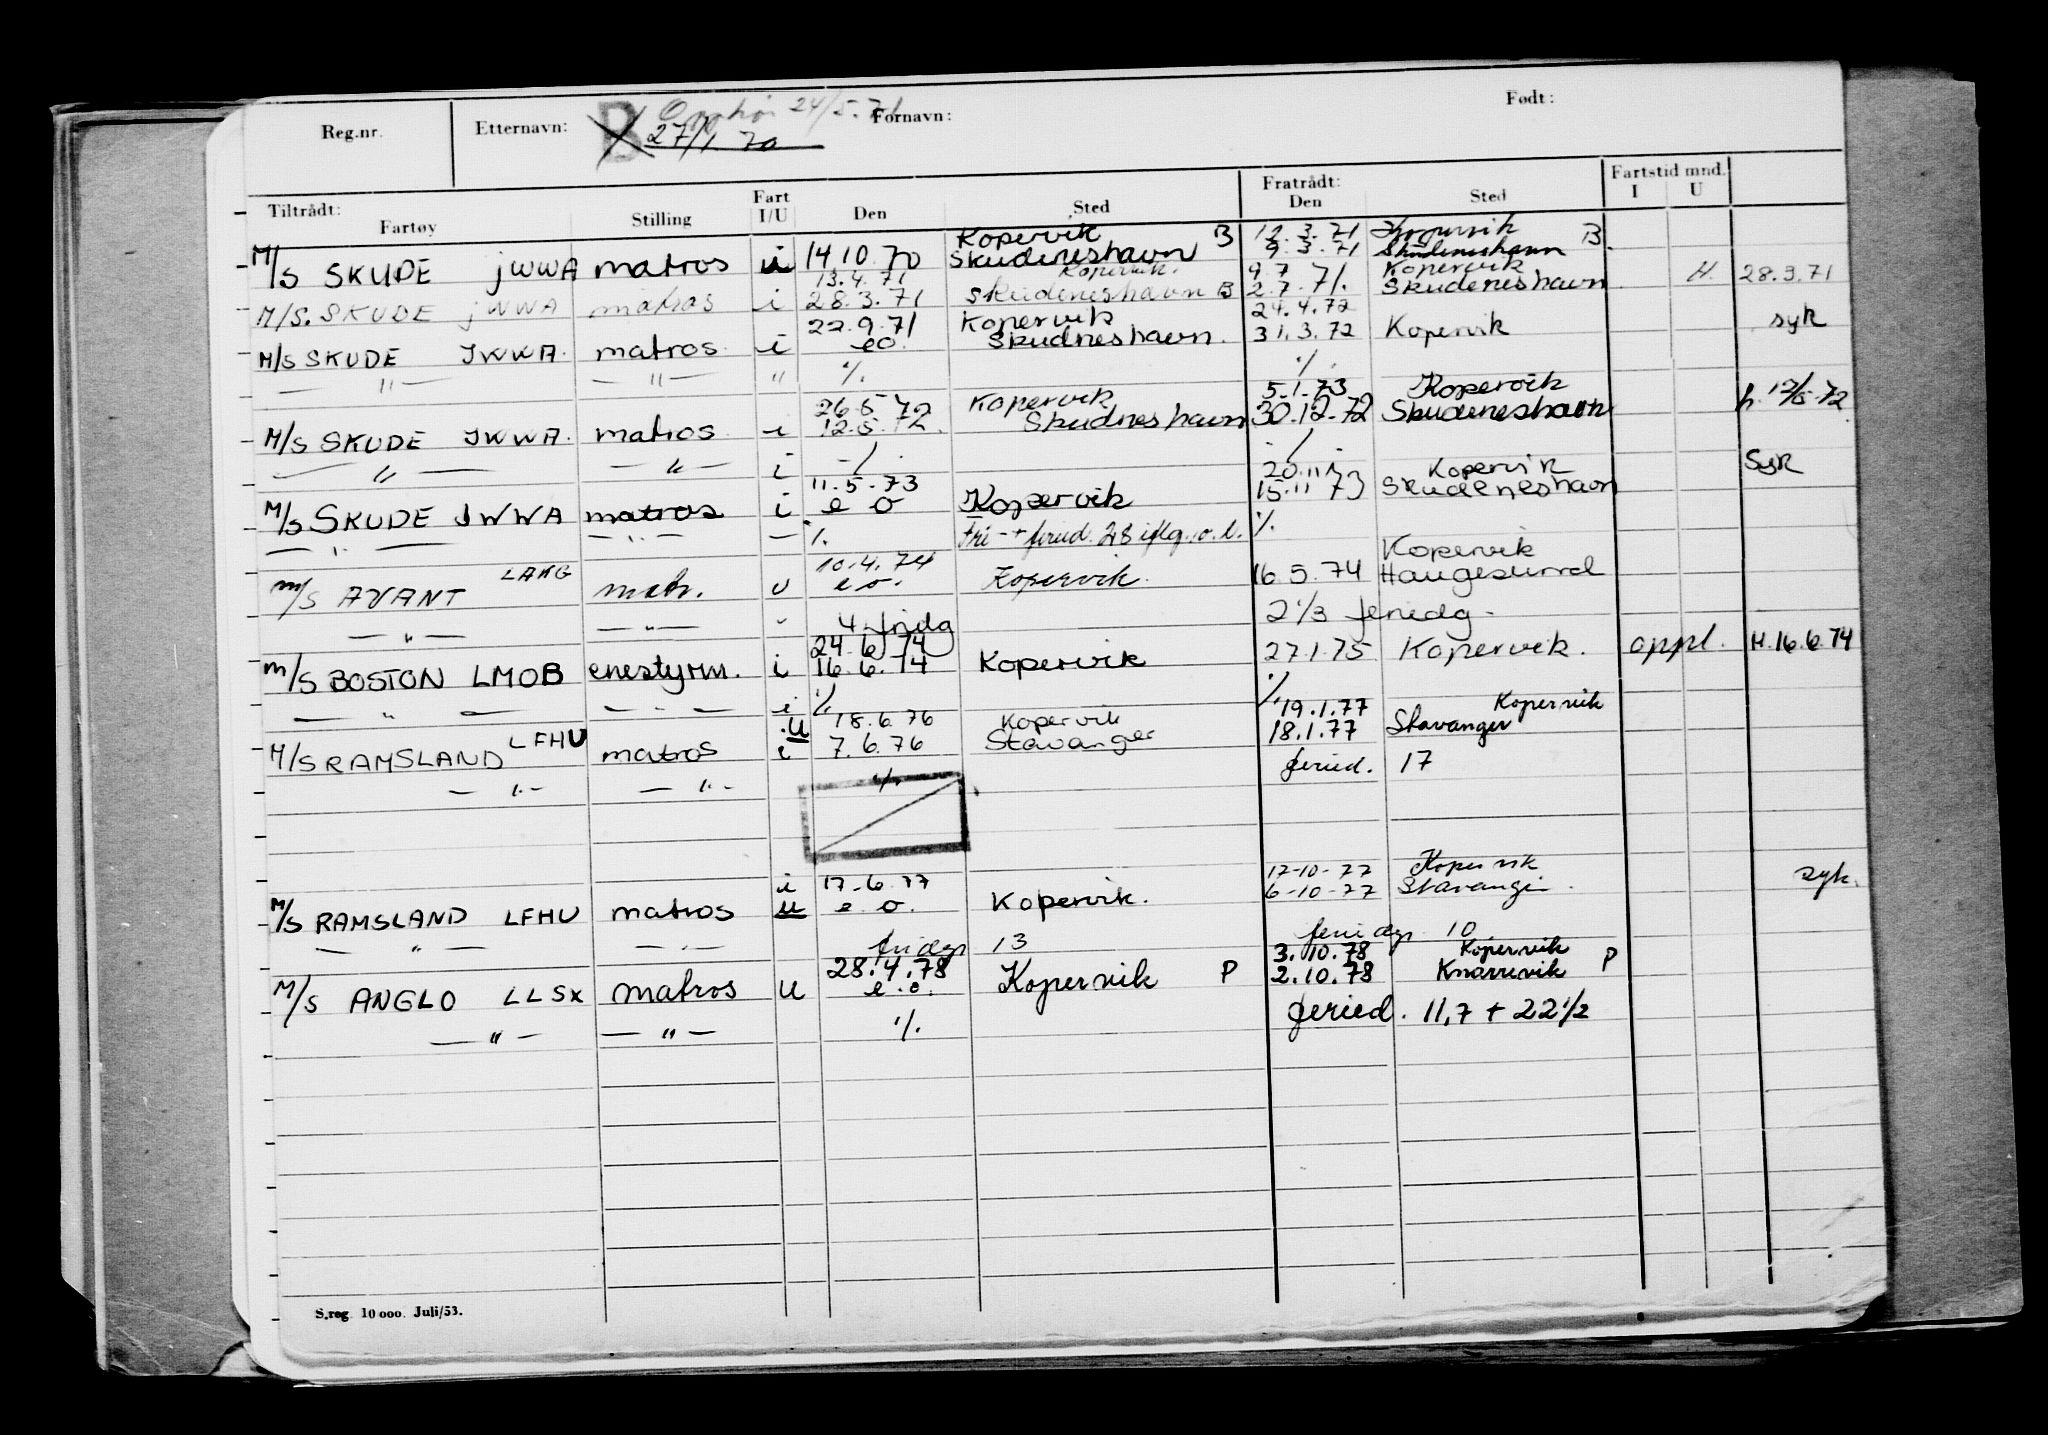 Reg.nr. Etternavn: B Opphør 24/5.71 Fornavn: Født:
27/1 70
Tiltrådt: Fart Fratrådt: Fartstid mnd.
Fartøy Stilling I/U Den Sted Den Sted I U
Kopervik 12.3.71 Kopervik
M/S SKUDE JWWA matros i 14.10.70 Skudeneshavn B 9.3.71 Skudeneshavn B
13.4.71 Kopervik. 9.7.71. Kopervik
M/S. SKUDE JWWA matros i 28.3.71 Skudeneshavn B 2.7.71. Skudeneshavn H. 28.3.71
22.9.71 Kopervik 24.4.72
M/S SKUDE JWWA. matros i eo. Skudneshavn. 31.3.72 Kopervik syk
— " — — " — " ./. ./.
26.5.72 Kopervik 5.1.73 Kopervik
M/S SKUDE JWWA. matros i 12.5.72. Skudneshavn 30.12.72 Skudeneshavn h. 12/5-72
— " — — " — i -/. ./.
11.5.73 20.11. Kopervik Syk
M/S SKUDE JWWA matros i e o Kopervik 15.11 73 Skudeneshavn
— " — — " — — ./. fri-+feried. 28 iflg. o.l. ./.
10.4.74 Kopervik
M/S AVANT LAKG matr. u e o. Kopervik. 16.5.74 Haugesund
— " — — " — " 4 fridg 2 1/3 feriedg -
24.6.74
M/S BOSTON LMOB enestyrm. i 16.6.74 Kopervik 27.1.75 Kopervik. oppl. H.16.6.74
— " — — " — i ./. ./.
U 18.6.76 Kopervik 19.1.77 Kopervik
M/S RAMSLAND LFHU matros i 7.6.76 Stavanger 18.1.77 Stavanger
— " — — " — ./. feried. 17
i 17-6-77 17-10-77 Kopervik
M/S RAMSLAND LFHU matros U e o. Kopervik. 6-10-77 Stavanger. syk.
— " — — " — fridgr 13 feriedgr. 10
28.4.78 3.10.78 Kopervik
M/S ANGLO LLSX matros U e.o. Kopervik P 2.10.78 Knarrevik P
— " — — " — ./. feried. 11,7 + 22 1/2
S.reg 10 000. Juli/53.